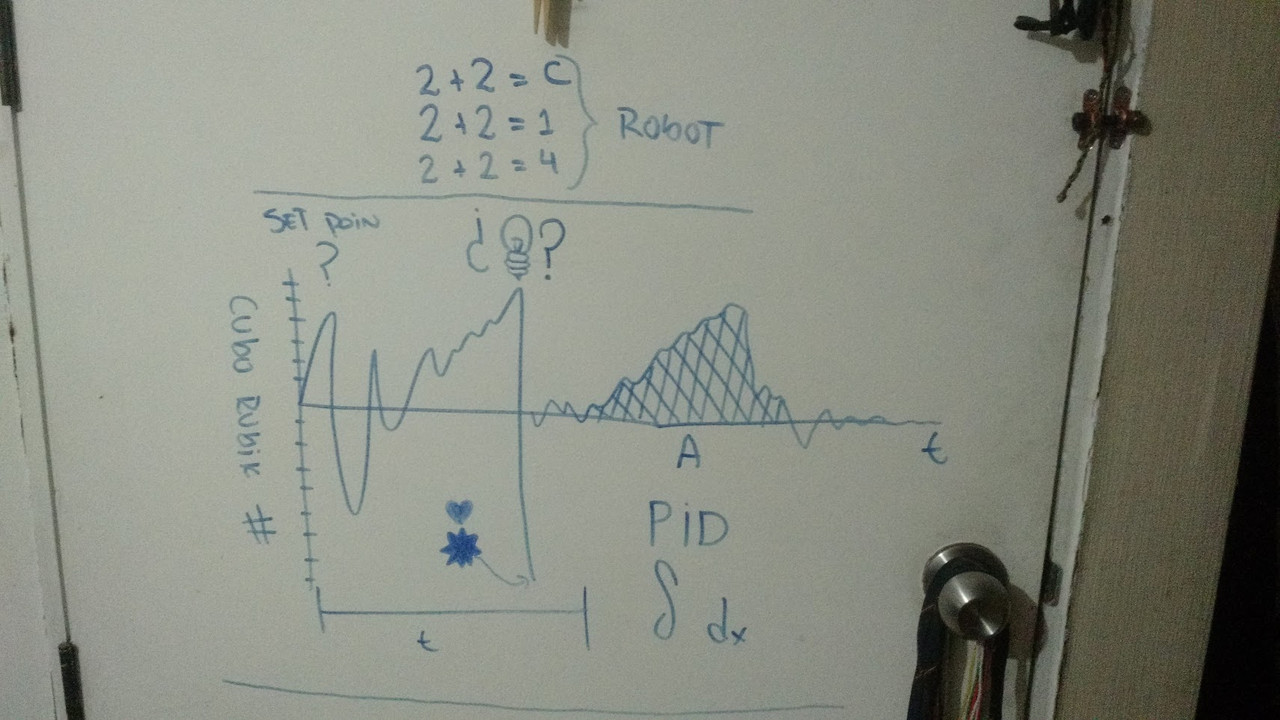 2 + 2 = C
2 + 2 = 1
2 + 2 = 4
ROBOT
SET POIN
?
¿ ?
Cubo Rubik #
t
A
PiD
∫ dx
t